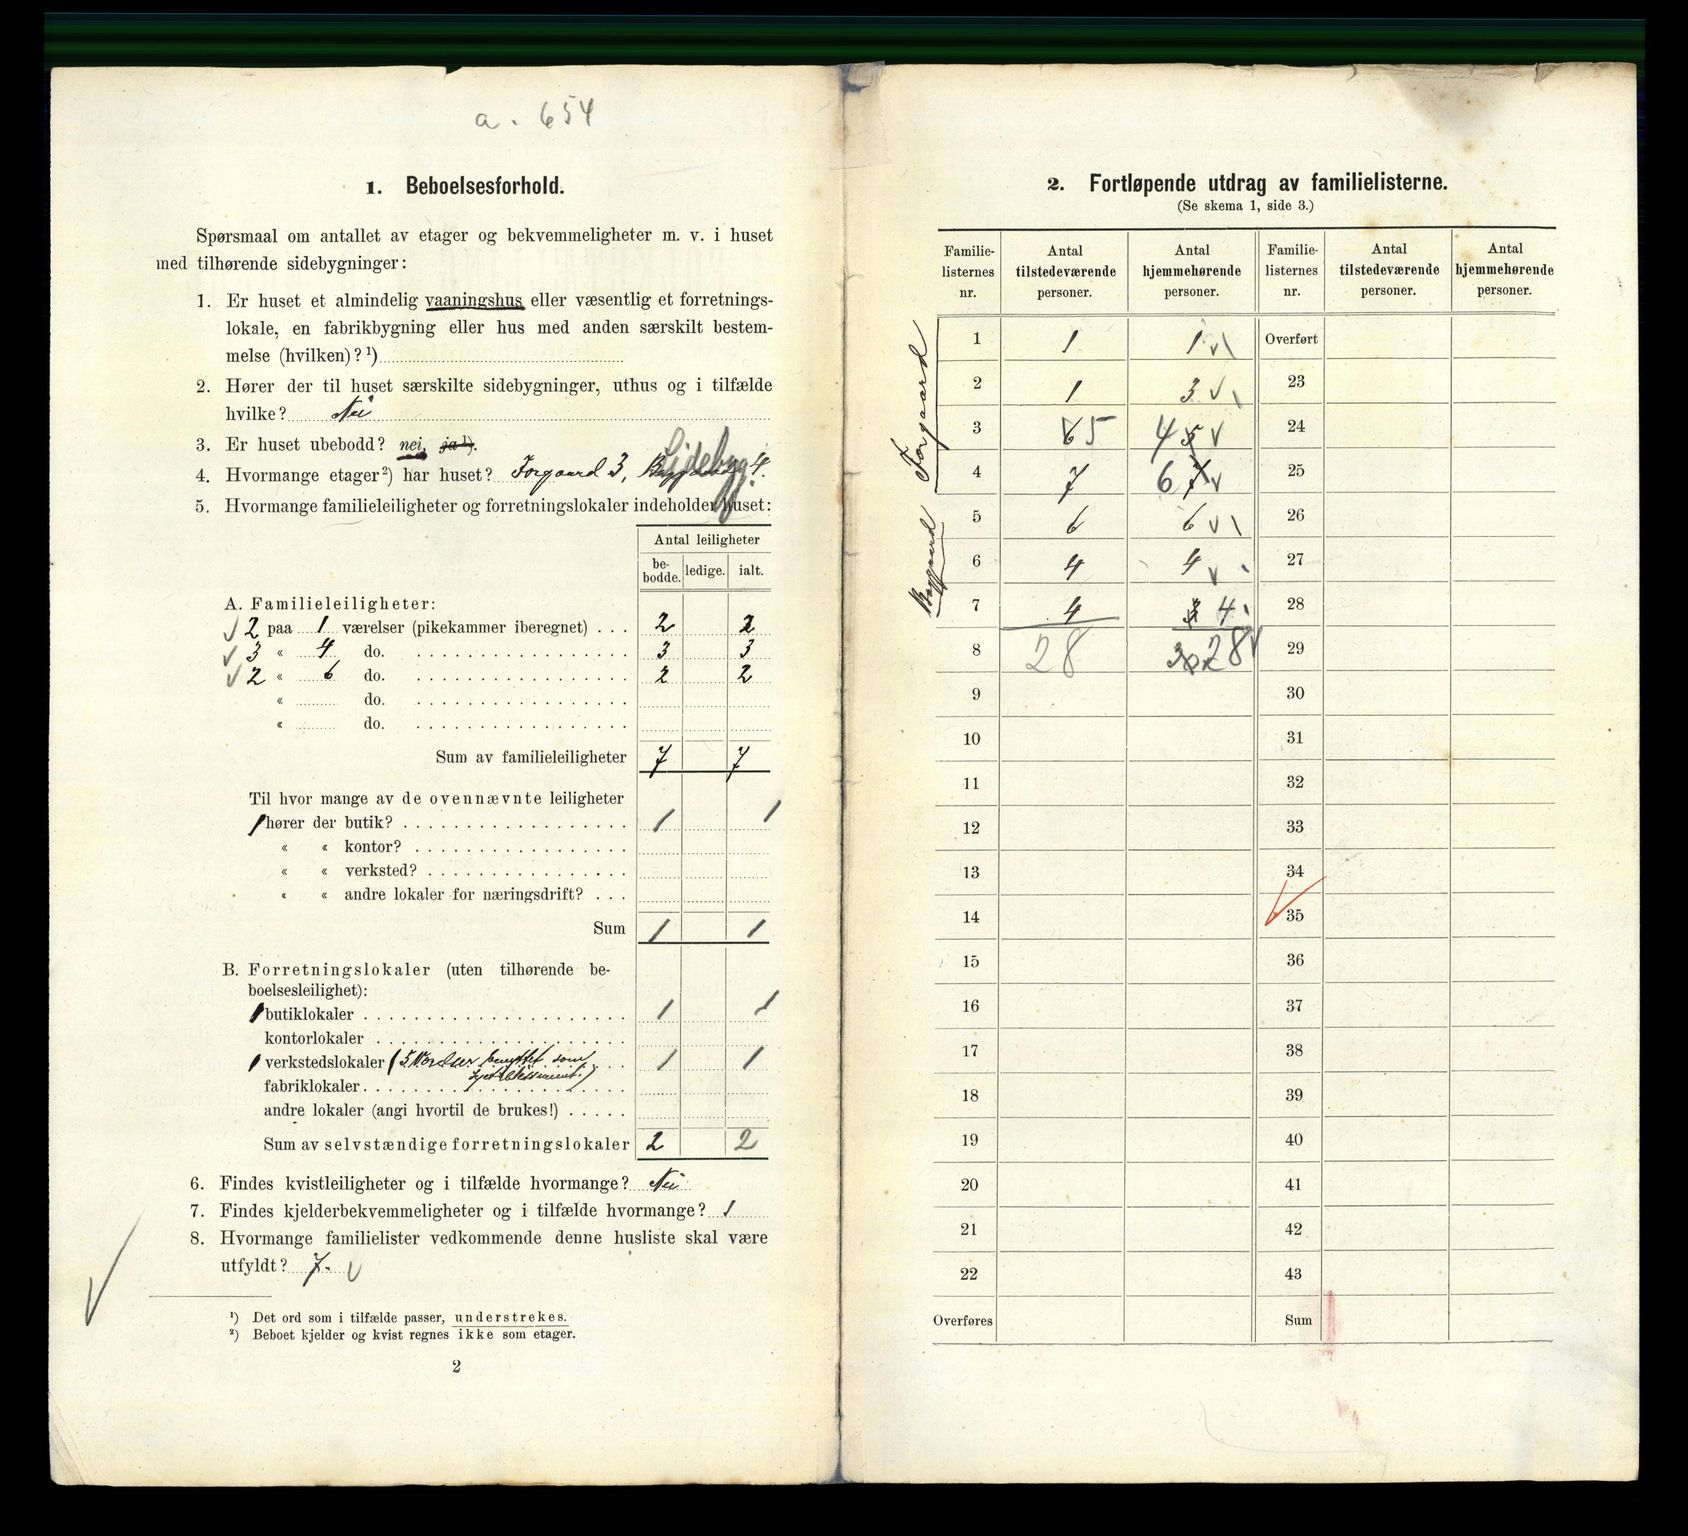 a. 654
1. Beboelsesforhold.
Spørsmaal om antallet av etager og bekvemmeligheter m. v. i huset
med tilhørende sidebygninger:
1. Er huset et almindelig vaaningshus eller væsentlig et forretnings-
lokale, en fabrikbygning eller hus med anden særskilt bestem-
melse (hvilken)?¹)
2. Hører der til huset særskilte sidebygninger, uthus og i tilfælde
hvilke? Nei
3. Er huset ubebodd? nei, ja¹).
4. Hvormange etager²) har huset? Forgaard 3, Sidebygg. 4.
5. Hvormange familieleiligheter og forretningslokaler indeholder huset:
Antal leiligheter
be-bodde. ledige. ialt.
A. Familieleiligheter:
√ 2 paa 1 værelser (pikekammer iberegnet) . . . 2 2
√ 3 « 4 do. 3 3
√ 2 « 6 do. 2 2
« do.
« do.
Sum av familieleiligheter 7 7
Til hvor mange av de ovennævnte leiligheter
1 hører der butik? 1 1
« « kontor?
« « verksted?
« « andre lokaler for næringsdrift? . . .
Sum 1 1
B. Forretningslokaler (uten tilhørende be-
boelsesleilighet):
1 butiklokaler 1 1
kontorlokaler
1 verkstedslokaler (5 Værelser benyttet som 1 1
fabriklokaler
andre lokaler (angi hvortil de brukes!) . . . . .
Sum av selvstændige forretningslokaler 2 2
6. Findes kvistleiligheter og i tilfælde hvormange? Nei
7. Findes kjelderbekvemmeligheter og i tilfælde hvormange? 1
8. Hvormange familielister vedkommende denne husliste skal være
utfyldt? 7. √
¹) Det ord som i tilfælde passer, understrekes.
²) Beboet kjelder og kvist regnes ikke som etager.
2
2. Fortløpende utdrag av familielisterne.
(Se skema 1, side 3.)
Familie-listernes nr. Antal tilstedeværende personer. Antal hjemmehørende personer. Familie-listernes nr. Antal tilstedeværende personer. Antal hjemmehørende personer.
Forgaard
Baggaard
1 1 1 √ Overført
2 1 3 √ 23
3 6 5 4 5 √ 24
4 7 6 7 √ 25
5 6 6 √ 26
6 4 4 √ 27
7 4 3 4 28
8 28 30 28 √ 29
9 30
10 31
11 32
12 33
13 34
14 35
15 36
16 37
17 38
18 39
19 40
20 41
21 42
22 43
Overføres Sum